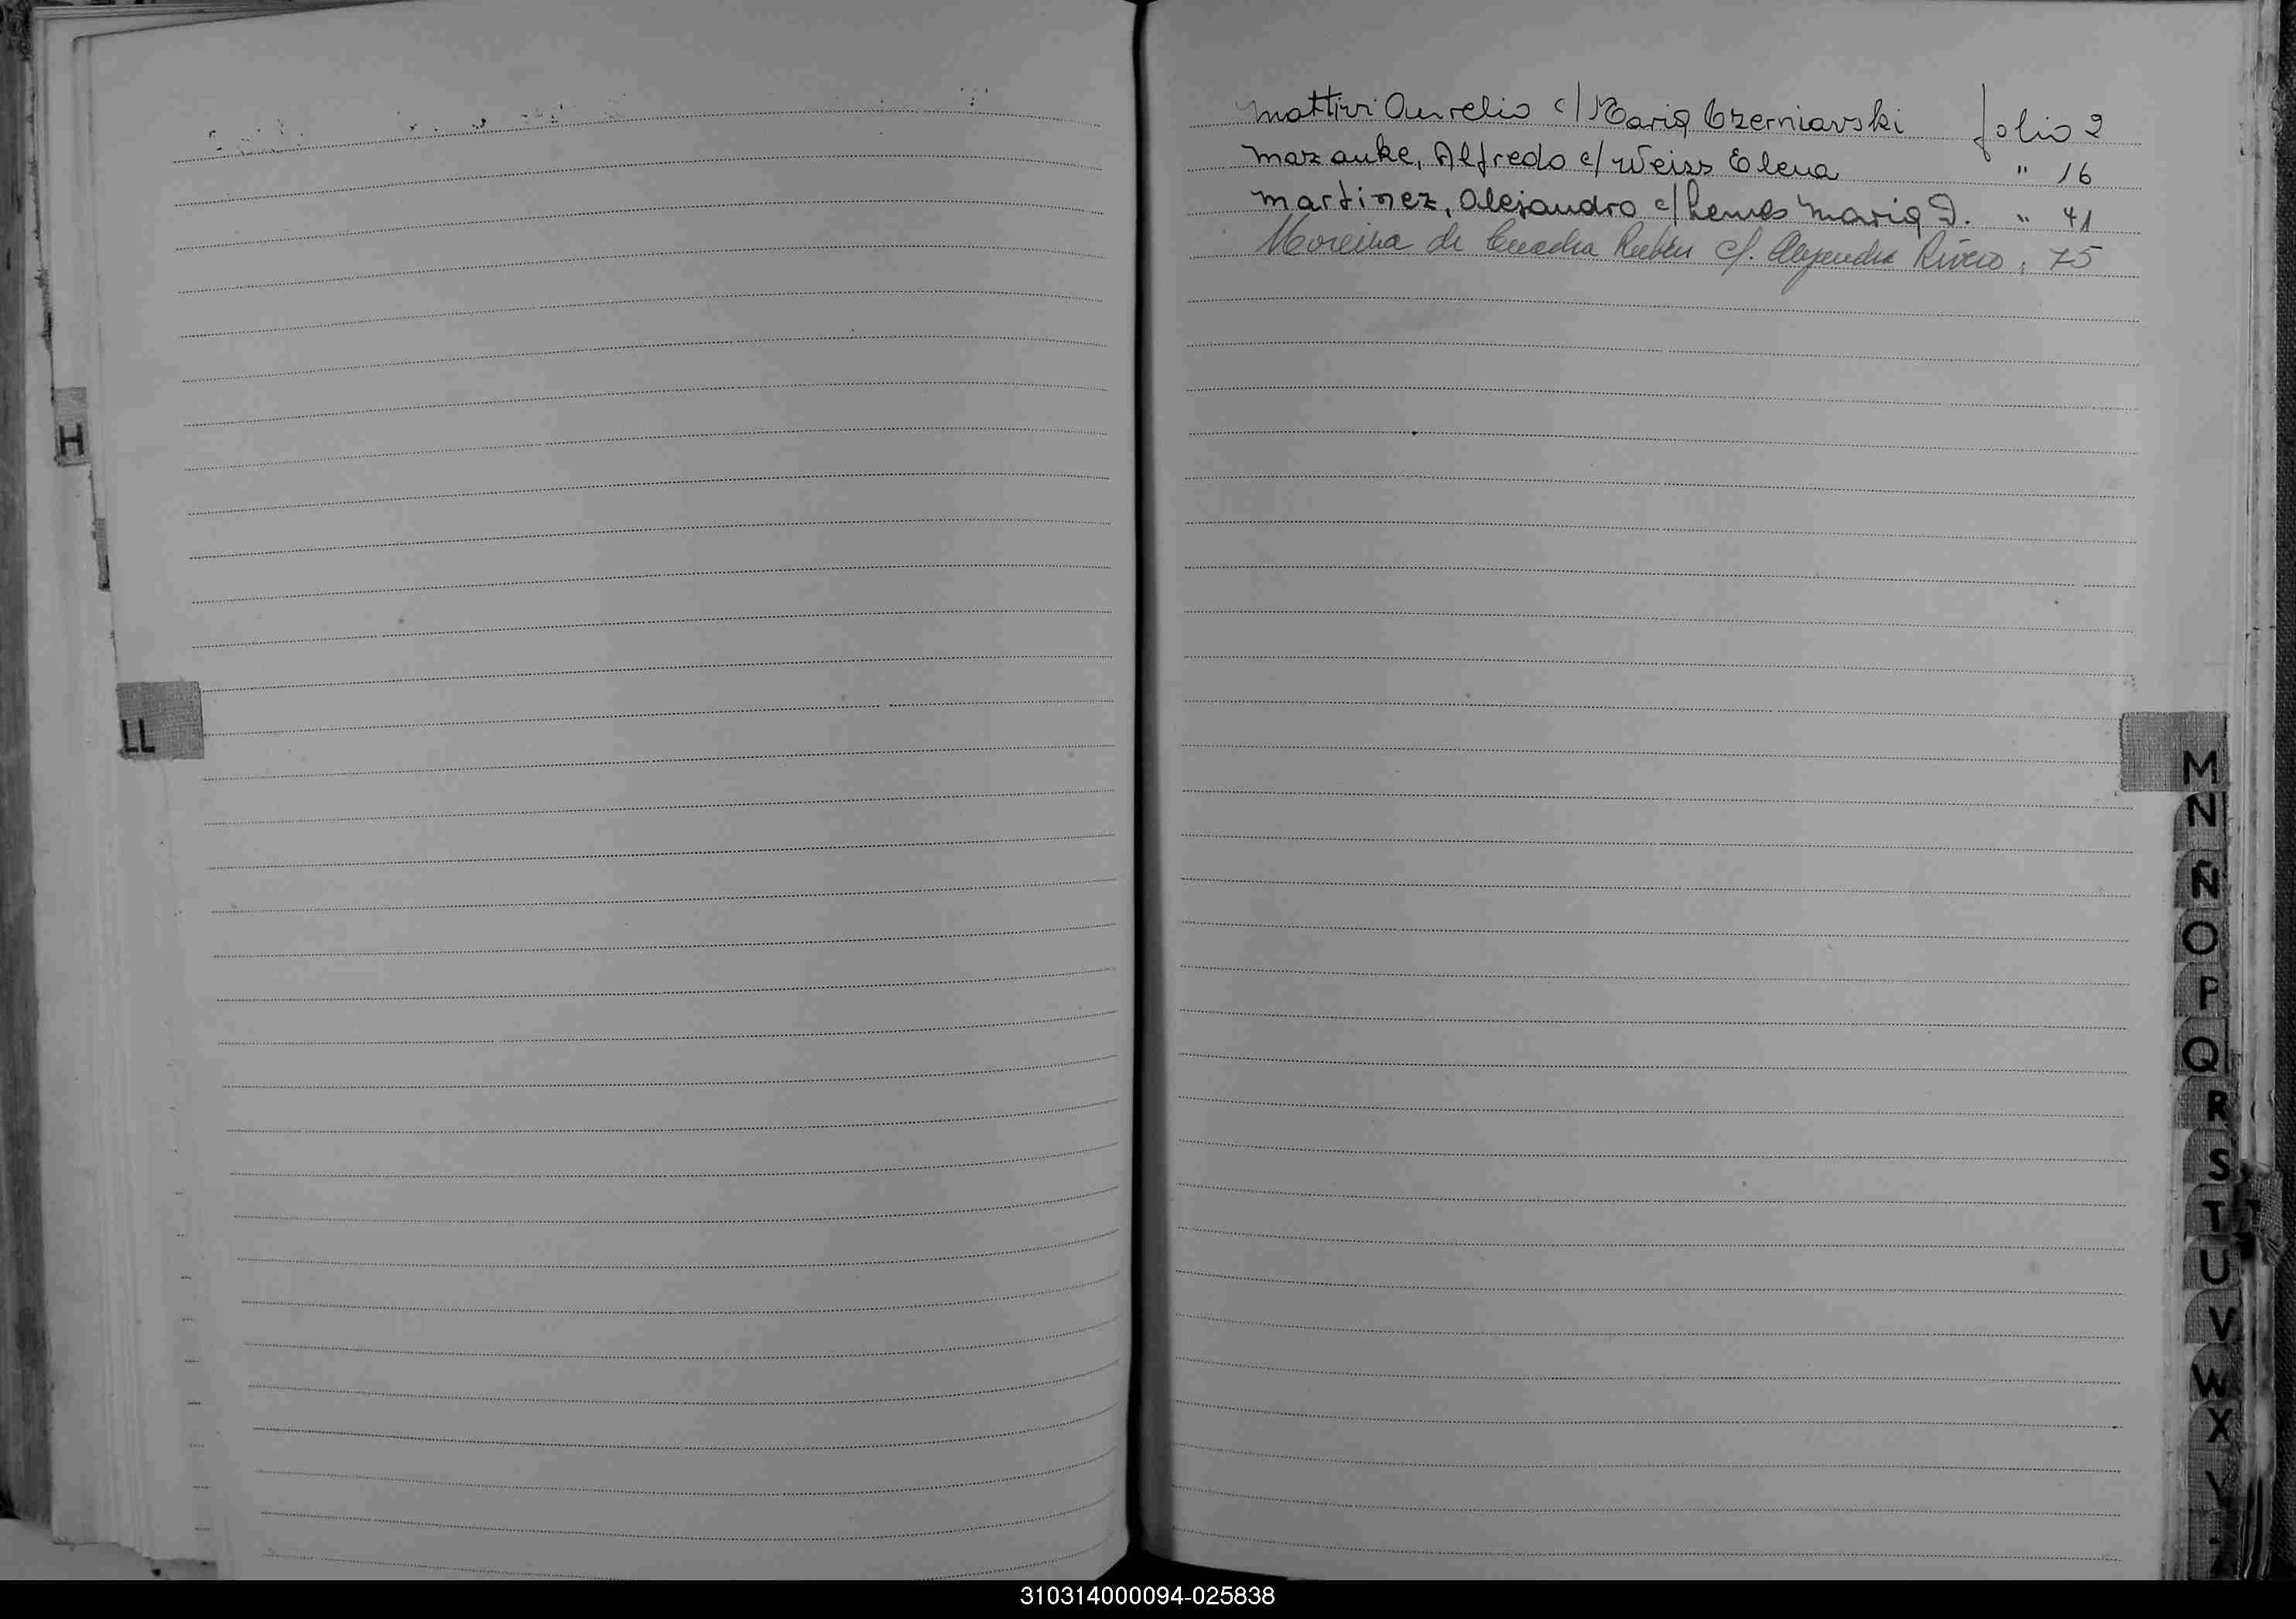 Mattivi Aurelio c/ Maria Czerniavski folio 2
Mazauke, Alfredo c/ Weiss Elena " 16
Martinez, Alejandro c/ Lemes Maria D. " 41
Moreira de Cuadra Rubén c/. Alejandra Rivero " 75
H
LL
M
N
Ñ
O
P
Q
R
S
T
U
V
W
X
Y
Z
310314000094-025838